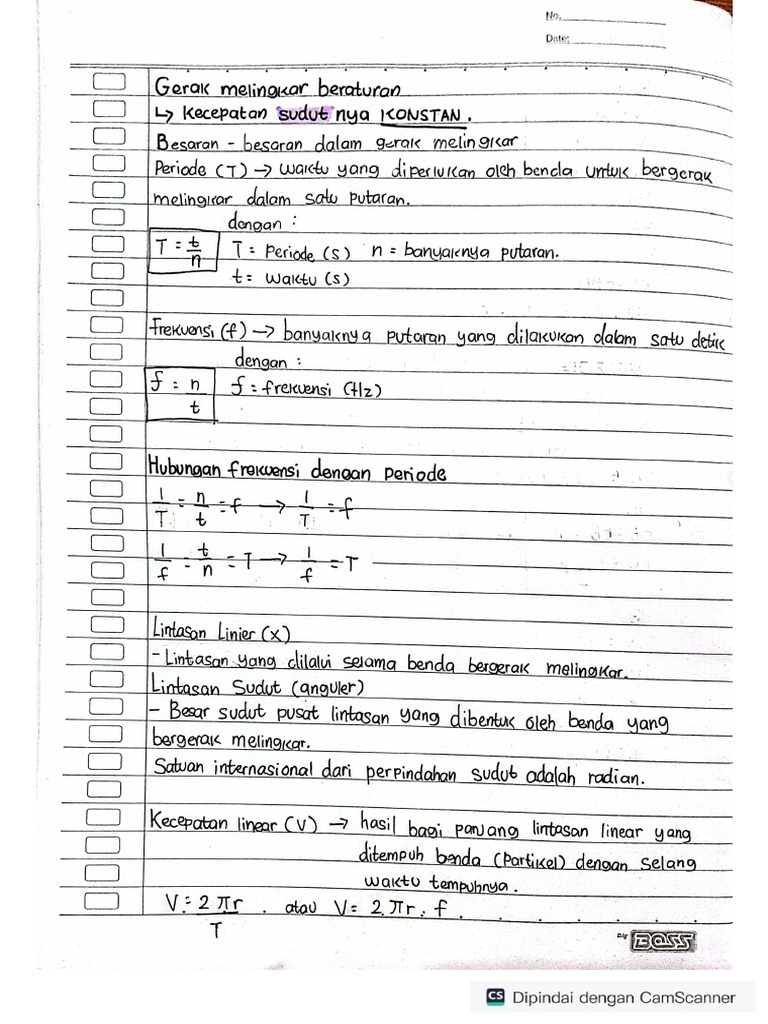 No.
Date:
Gerak melingkar beraturan
↳ Kecepatan sudut nya KONSTAN.
Besaran - besaran dalam gerak melingkar
Periode (T) → waktu yang diperlukan oleh benda untuk bergerak
melingkar dalam satu putaran.
dengan :
T = t/n T = Periode (s) n = banyaknya putaran.
t = waktu (s)
Frekuensi (f) → banyaknya putaran yang dilakukan dalam satu detik
dengan :
f = n/t f = frekuensi (Hz)
Hubungan frekuensi dengan periode
1/T = n/t = f → 1/T = f
1/f = t/n = T → 1/f = T
Lintasan Linier (x)
- Lintasan yang dilalui selama benda bergerak melingkar.
Lintasan Sudut (anguler)
- Besar sudut pusat lintasan yang dibentuk oleh benda yang
bergerak melingkar.
Satuan internasional dari perpindahan sudut adalah radian.
Kecepatan linear (V) → hasil bagi panjang lintasan linear yang
ditempuh benda (Partikel) dengan selang
waktu tempuhnya.
V = 2 πr/T . atau V = 2.πr. f .
BOSS
CS Dipindai dengan CamScanner